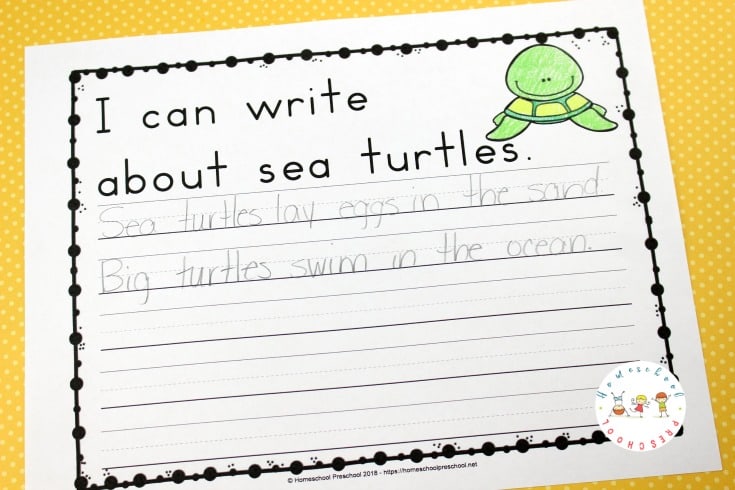 I can write
about sea turtles.
Sea turtles lay eggs in the sand.
Big turtles swim in the ocean.
Homeschool
PRESCHOOL
© Homeschool Preschool 2018 - https://homeschoolpreschool.net